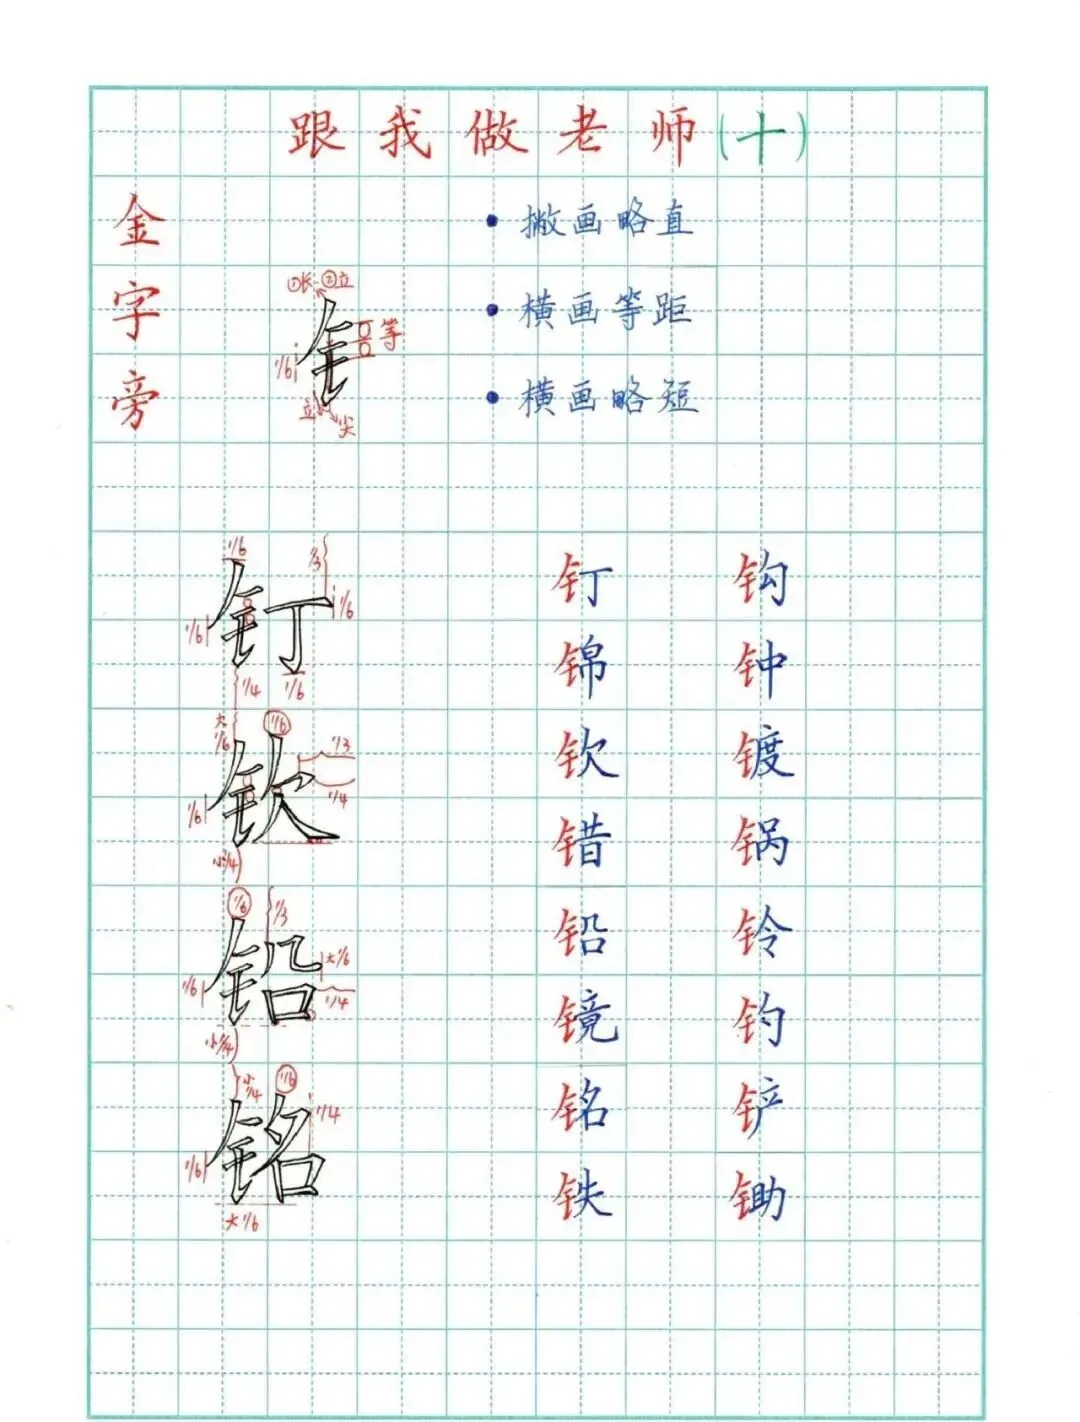 跟我做老师(十)
金字旁
• 撇画略直
• 横画等距
• 横画略短
①长 ②立
钅
等
1/6
立
尖
1/6
1/3
钉
1/6
1/6
1/4
1/6
钉 钩
锦 钟
大1/6
1/6
钦
1/3
1/4
1/6
小1/4
钦 镀
错 锅
1/6
1/3
铅
大1/6
1/6
1/4
小1/4
铅 铃
镜 钓
小1/4
1/6
铭
1/4
1/6
大1/6
铭 铲
铁 锄